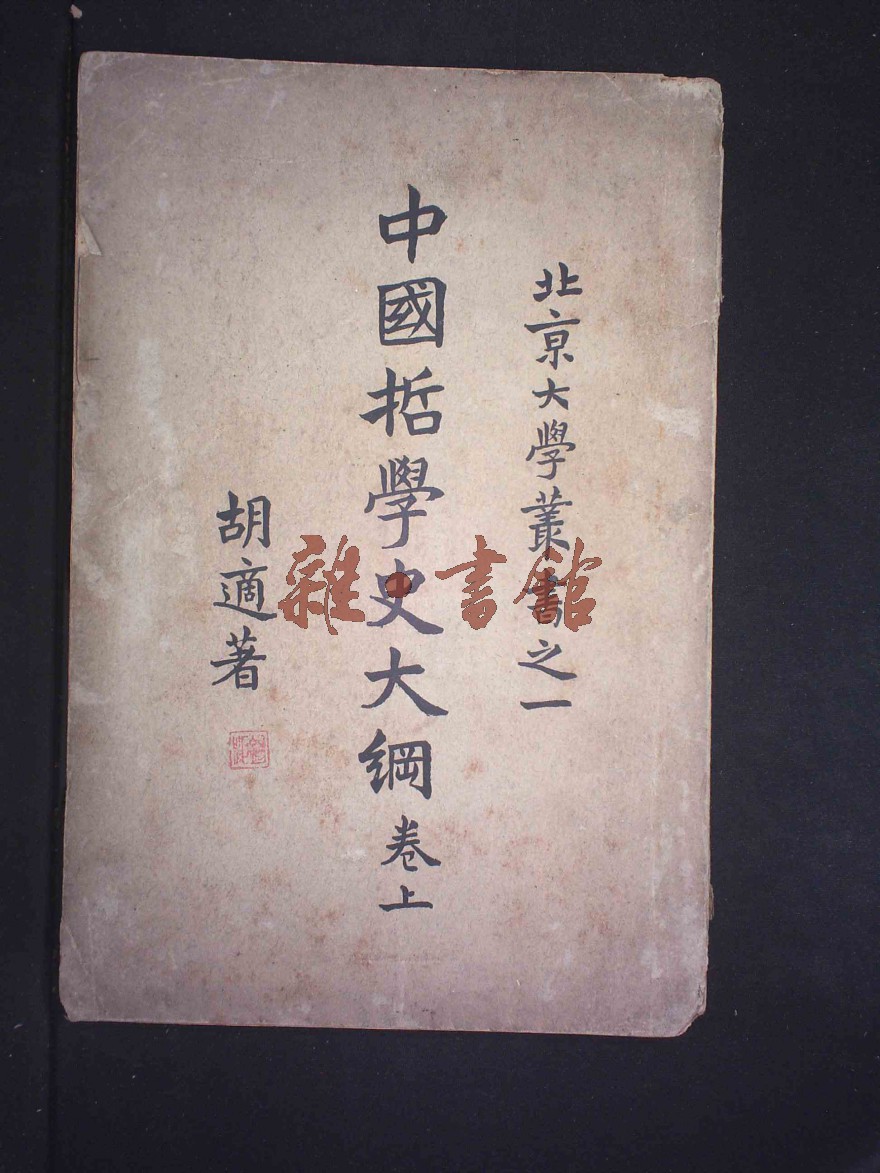 北京大學叢書之一
中國哲學史大綱卷上
胡適著
雜·書館